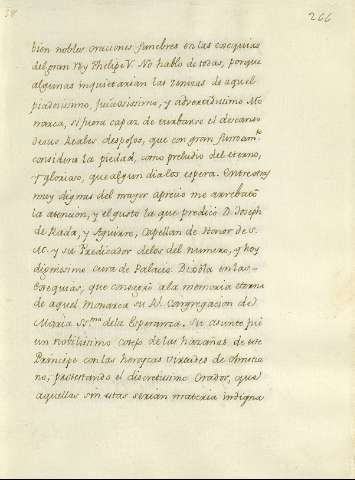 58
266
bien nobles oraciones funebres en las exequias
del gran Rey Phelipe V. No hablo de todas, porque
algunas inquietarian las zenizas de aquel
piadosissimo, juiciosissimo, y advertidissimo Mo
narca, si fuera capaz de turbarse el descanso
de sus Reales despojos, que con gran fundam.to
considera la piedad, como preludio del eterno,
y glorioso, que algun dia los espera. Entre otras
muy dignas del mayor aprecio me arrebató
la atencion, y el gusto la que predicó D. Joseph
de Rada, y Aguirre, Capellan de Honor de S.
M. y su Predicador de los del numero, y hoy
dignissimo cura de Palacio. Dixola en las
Exequias, que consagró a la memoria eterna
de aquel Monarca su Rl. Congregacion de
Maria SS.ma de la Esperanza. Su asunto fue
un nobilissimo cotejo de las hazañas de este
Principe con las heroycas virtudes de christia
no, protestando el discretissimo Orador, que
aquellas sin estas serian materia indigna